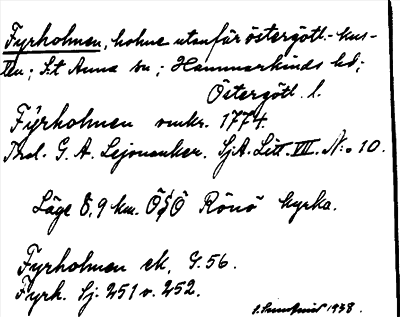 Fyrholmen, holme utanför östergötl.-kus-
ten; S:t Anna sn; Hammarkinds hd;
Östergötl. l.
Fÿrholmen omkr. 1774.
G. A. Lejonanker. SjA. Litt. VII. N:o 10.
Läge 8,9 km. Ö Rönö kyrka.
Fyrholmen ek. G. 56.
Fyrh. Sj. 251 o. 252.
1938.